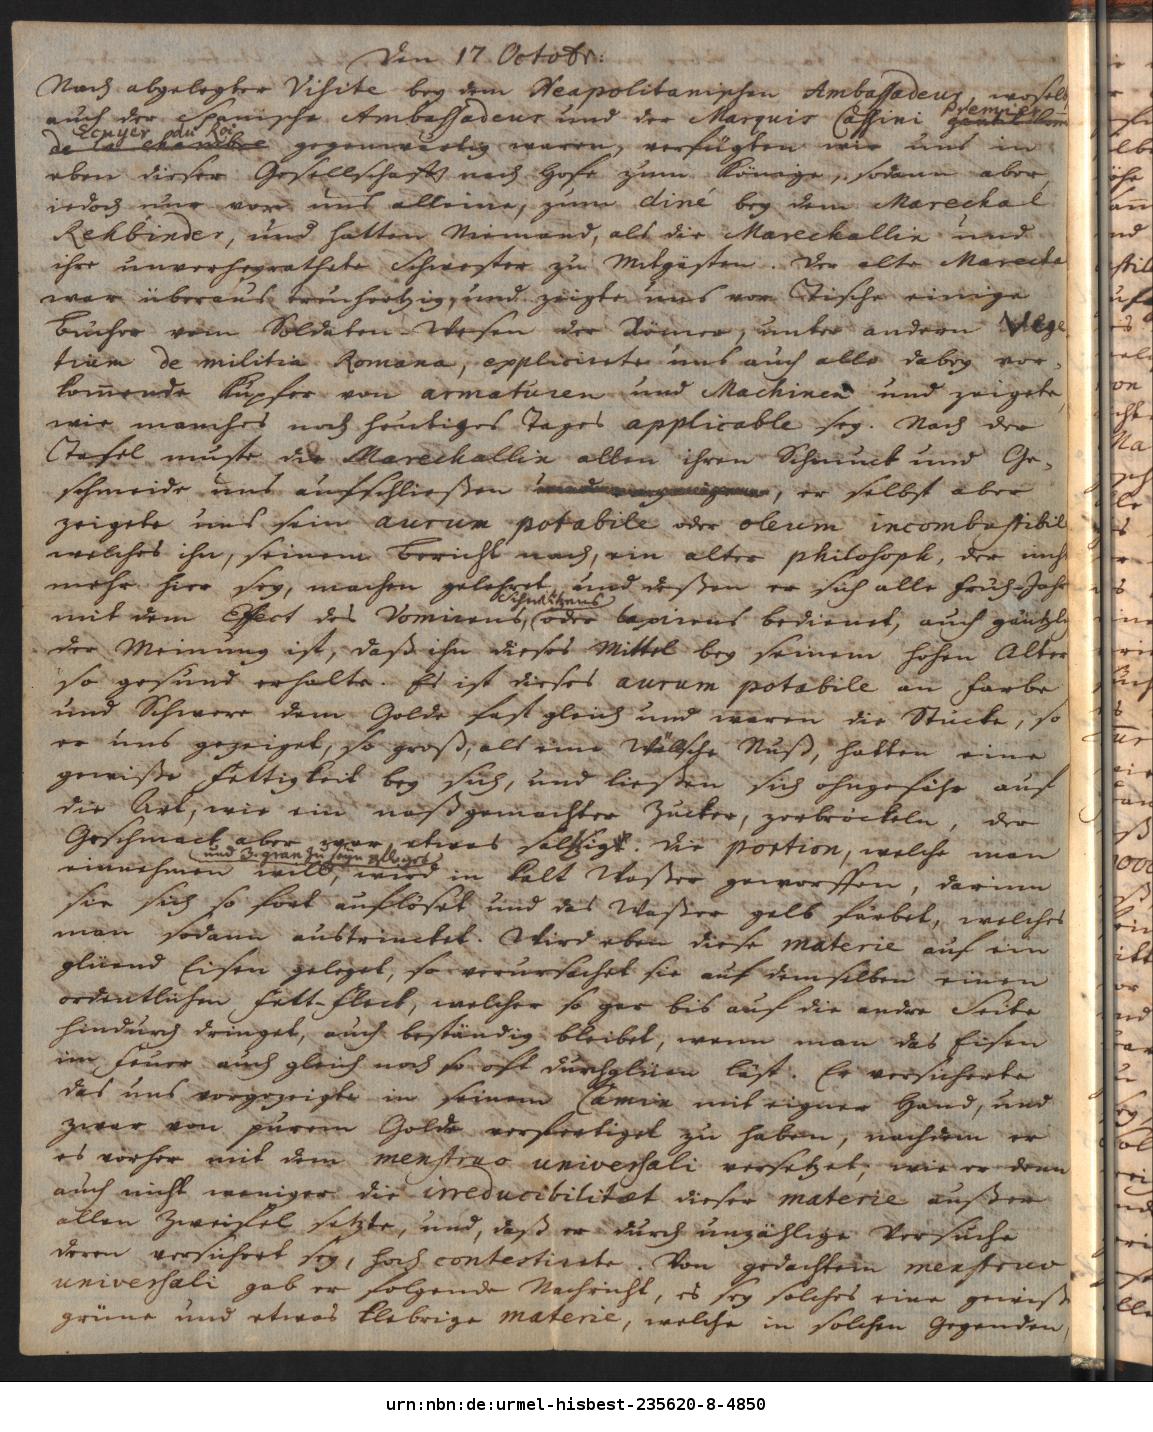 Den 17 Octobr:
Nach abgelegter Visite bey dem Neapolitanischen Ambassadeur, woselbst
auch der Spanische Ambassadeur und der Marquis Cassini Premier gentilhom
Ecuyer du Roi
de la chambre gegenwärtig waren, verfügten wir uns in
eben dieser Gesellschafft nach Hofe zum Könige, sodann aber
iedoch nur vor uns alleine, zum diné bey dem Marechal
Rehbinder, und hatten Niemand, als die Marechallin und
ihre unverheyrathete Schwester zu Mitgästen. Der alte Marecha
war überaus treuhertzig, und zeigte uns vor Tische einige
Bücher vom Soldaten-Wesen der Römer, unter andern Vege
tium de militia Romana, explicirete uns auch alle dabey vor-
kom̄ende Kupfer von armaturen und Machinen und zeigete,
wie manches noch heutiges Tages applicable sey. Nach der
Tafel muste die Marechallin allen ihren Schmuck und Ge-
schmeide uns aufschließen, er selbst aber
zeigete uns sein aurum potabile oder oleum incombustibil
welches ihn, seinem Bericht nach, ein alter philosoph, der nich
mehr hier sey, machen gelehret und deßen er sich alle Früh-Jahr
Schwitzens
mit dem Effect des Vomirens, oder laxirens bedienet, auch gäntzl
der Meinung ist, daß ihn dieses Mittel bey seinem hohen Alter
so gesund erhalte. Es ist dieses aurum potabile an Farbe
und Schwere dem Golde fast gleich und waren die Stücke, so
er uns gezeiget, so groß, als eine Wällsche Nuß, hatten eine
gewiße Fettigkeit bey sich, und ließen sich ohngefähr auf
die Art, wie ein naßgemachter Zucker, zerbröckeln, der
Geschmack aber war etwas saltzigt. Die portion, welche man
und 3. gran zu seyn pfleget
einnehmen will, wird in kalt Waßer geworffen, darinn
sie sich so fort auflöset und das Waßer gelb färbet, welches
man sodann austrincket. Wird eben diese materie auf ein
glüend Eisen geleget, so verursachet sie auf demselben einen
ordentlichen Fett-Fleck, welcher so gar bis auf die andre Seite
hindurch dringet, auch beständig bleibet, wenn man das Eisen
im Feuer auch gleich noch so oft durchglüen läst. Er versicherte
das uns vorgezeigte in seinem Camin mit eigner Hand, und
zwar von purem Golde verfertiget zu haben, nachdem er
es vorher mit dem menstruo universali versetzet, wie er denn
auch nicht weniger die irreducibilitæt dieser materie außer
allen Zweifel setzte, und, daß er durch unzählige Versuche
deren versichert sey, hoch contestirete. Von gedachtem menstruo
universali gab er folgende Nachricht, es sey solches eine gewiß
grüne und etwas klebrige materie, welche in solchen Gegenden,
urn:nbn:de:urmel-hisbest-235620-8-4850